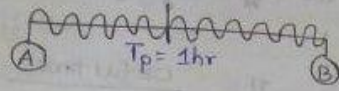 A
Tp = 1hr
B